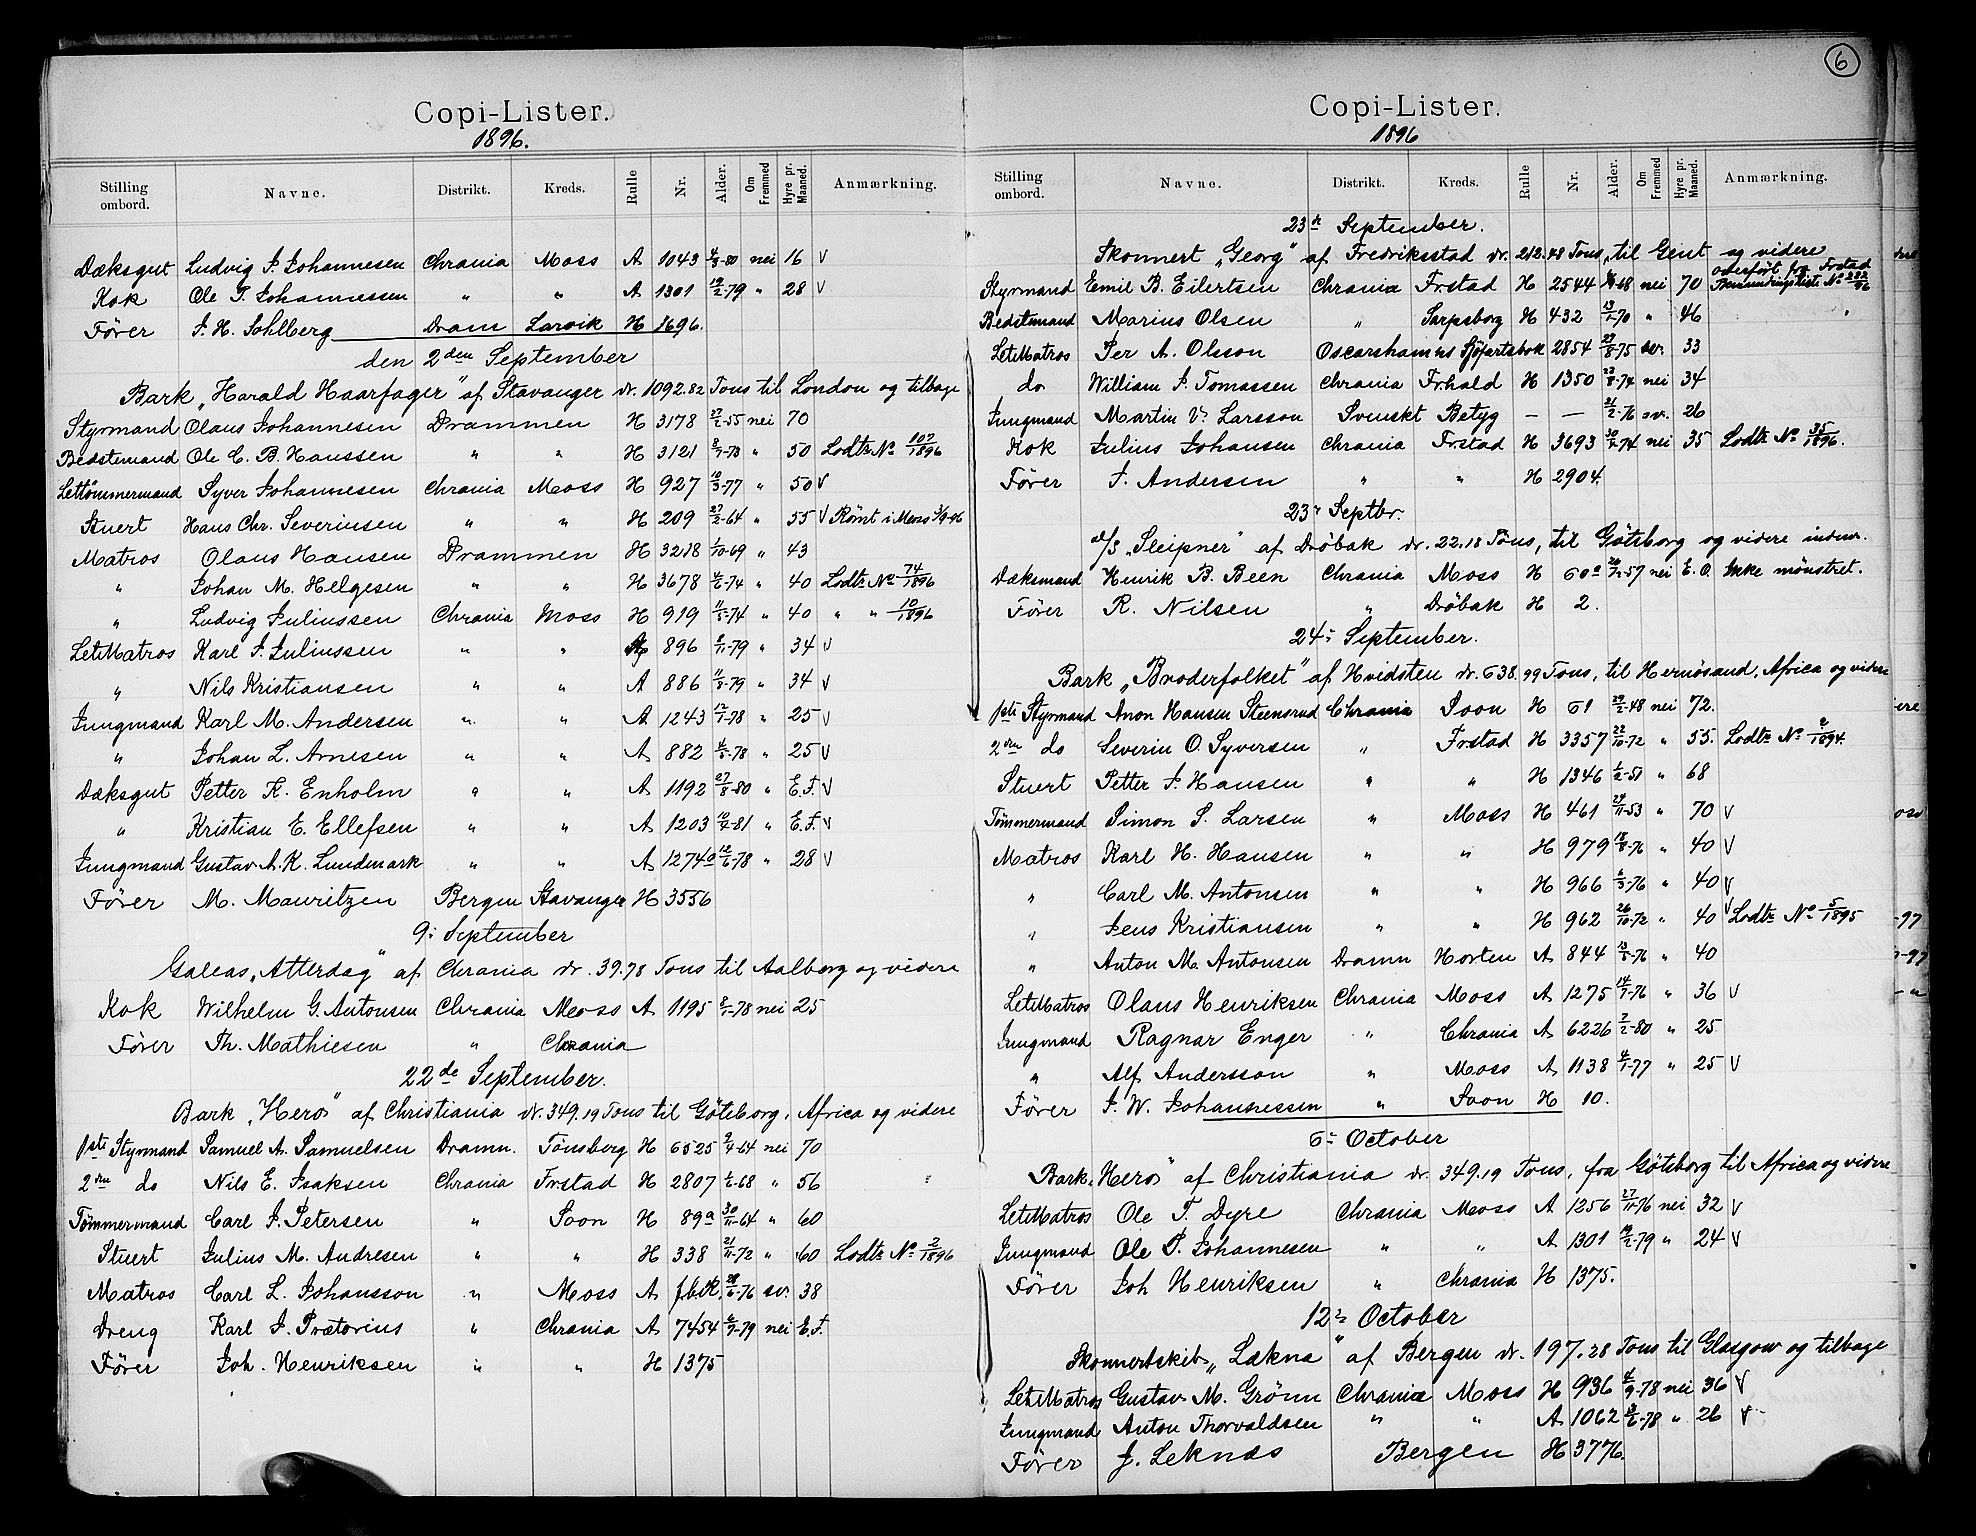 Copi-Lister.
1896.
Stilling ombord. Navne. Distrikt. Kreds. Rulle Nr. Alder. Om Fremmed Hyre pr. Maaned. Anmærkning.
Dæksgut Ludvig J. Johannesen Chrania Moss A 1043 4/3-80 nei 16 V
Kok Ole T. Johannessen " " A 1301 19/2-79 " 28 V
Fører J. H. Sohlberg Dram Larvik H 1696.
den 2den September
Bark „Harald Haarfager" af Stavanger dr. 1092.82 Tons til London og tilbage
Styrmand Olaus Johannesen Drammen H 3178 27/2-55 nei 70
Bedstemand Ole C. B. Hanssen " " H 3121 8/7-73 " 50 Lodts No 107/1896
Lettömmermand Syver Johannesen Chrania Moss H 927 10/3-77 " 50 V
Stuert Hans Chr. Severinsen " " H 209 27/2-64 " 55 V Römt i Moss 3/9-96
Matros Olaus Hansen Drammen H 3218 1/10-69 " 43
" Johan M. Helgesen " " H 3678 4/6-74 " 40 Lodts No 74/1896
" Ludvig Juliussen Chrania Moss H 919 11/5-74 " 40 " " 10/1896
LetMatros Karl J. Juliussen " " 896 8/11-79 " 34 V
" Nils Kristiansen " " A 886 11/3-79 " 34 V
Jungmand Karl M. Andersen " " A 1243 12/1-78 " 25 V
" Johan L. Arnesen " " A 882 4/5-78 " 25 V
Dæksgut Petter K. Enholm " " A 1192 27/8-80 " E.F. V
" Kristian E. Ellefsen " " A 1203 10/4-81 " E.F. V
Jungmand Gustav A. K. Lundmark " " A 1274a 12/6-78 " 28 V
Fører M. Mauritzen Bergen Stavanger H 3556
9: September
Galeas „Atterdag" af Chrania dr. 39.78 Tons til Aalborg og videre
Kok Wilhelm G. Antonsen Chrania Moss A 1195 8/1-78 nei 25
Fører Th. Mathiesen " Chrania
22de September.
Bark „Heros" af Christiania dr. 349.19 Tons til Göteborg, Africa og videre
1ste Styrmand Samuel A. Samuelsen Dramn. Tönsberg H 6525 9/4-64 nei 70
2den do Nils E. Isaksen Chrania Frstad H 2807 1/6-68 " 56
Tömmermand Carl J. Petersen " Soon H 89a 30/11-64 " 60
Stuert Julius M. Andresen " " H 338 21/11-72 " 60 Lodts No 2/1896
Matros Carl L. Johansson " Moss A 28/6-76 sv. 38
Dreng Karl J. Prætorius " Chrania A 7454 4/7-79 nei E.F.
Fører Joh. Henriksen " " H 1375
6
Copi-Lister.
1896
Stilling ombord. Navne. Distrikt. Kreds. Rulle Nr. Alder. Om Fremmed Hyre pr. Maaned. Anmærkning.
23de September.
Skonnert „Georg" af Fredriksstad dr. 212.48 Tons, til Gent og videre
Styrmand Emil B. Eilertsen Chrania Frstad H 2544 -68 nei 70 overført fra Frstad
Bedstemand Marius Olsen " Sarpsborg H 432 13/1-70 " 46
LetMatros Per A. Olsson Oscarshamns Sjöfartsbok 2854 27/8-75 sv. 33
do William J. Tomassen Chrania Frhald H 1350 23/8-74 nei 34
Jungmand Martin V. Larsson Svenskt Betyg — — 21/2-76 sv. 26
Kok Julius Johansen Chrania Frstad H 3693 30/9-74 nei 35 Lodts No 35/1896.
Fører J. Andersen " " H 2904.
23: Septbr.
d/s „Sleipner" af Dröbak dr. 22.18 Tons, til Göteborg og videre indenr.
Dæksmand Henrik B. Been Chrania Moss H 60a 20/12-57 nei E.O. Ikke mönstret.
Fører R. Nilsen " Dröbak H 2.
24: September.
Bark „Broderfolket" af Hvidsten dr. 638.99 Tons, til Hernösand, Africa og videre
1ste Styrmand Anon Hansen Steensrud Chrania Soon H 61 29/2-48 nei 72.
2den do Severin O. Syversen " Frstad H 3357 22/10-72 " 55. Lodts No 2/1894.
Stuert Petter J. Hansen " " H 1346 1/2-51 " 68
Tömmermand Simon S. Larsen " Moss H 461 29/11-53 " 70 V
Matros Karl H. Hansen " " H 979 18/8-76 " 40 V
" Carl M. Antonsen " " H 966 6/3-76 " 40 V
" Jens Kristiansen " " H 962 26/10-72 " 40 V Lodts No 5/1895
" Anton M. Antonsen Dramn Horten A 844 13/5-76 " 40
LetMatros Olaus Henriksen Chrania Moss A 1275 14/7-76 " 36 V
Jungmand Ragnar Enger " Chrania A 6226 2/2-80 " 25
" Alf Andersson " Moss A 1138 4/1-77 " 25 V
Fører J. W. Johannessen " Soon H 10.
6: October
Bark „Heros" af Christiania dr. 349.19 Tons, fra Göteborg til Africa og videre
LetMatros Ole T. Dyre Chrania Moss A 1256 27/11-76 nei 32 V
Jungmand Ole P. Johannesen " " A 1301 19/2-79 " 24 V
Fører Joh Henriksen " Chrania H 1375.
12: October
Skonnertskib „Lækna" af Bergen dr. 197.28 Tons til Glasgow og tilbage
LetMatros Gustav M. Grönn Chrania Moss H 936 4/9-78 nei 36 V
Jungmand Anton Thorvaldsen " " A 1062 18/6-78 " 26 V
Fører J. Leknæs Bergen H 3776.